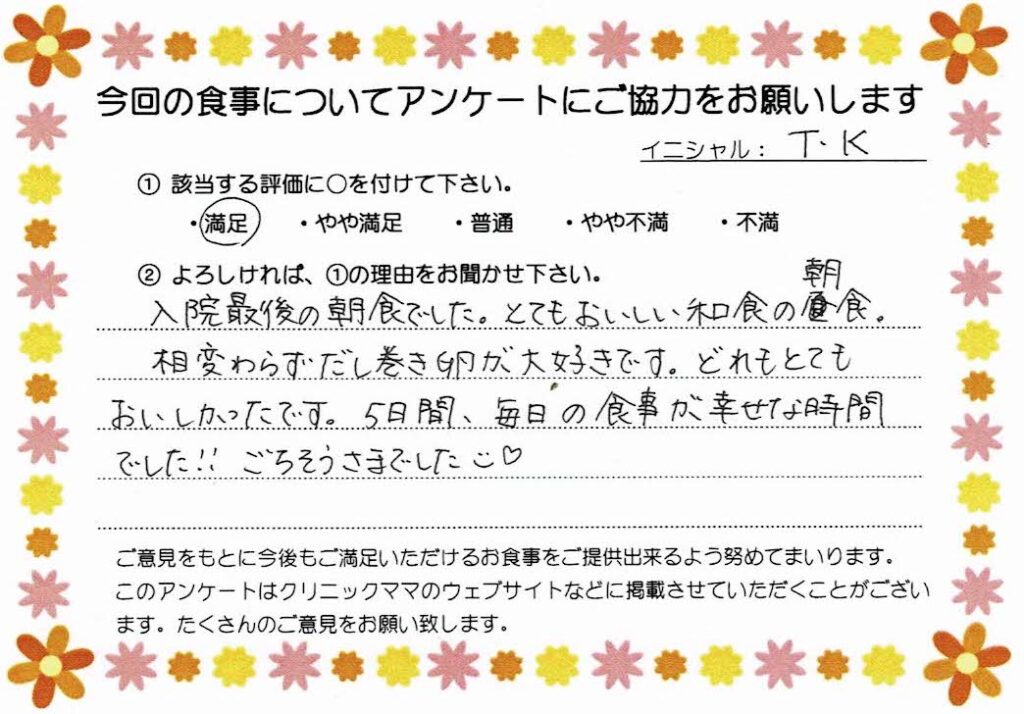 今回の食事についてアンケートにご協力をお願いします
イニシャル： T.K
① 該当する評価に○を付けて下さい。
・満足 ・やや満足 ・普通 ・やや不満 ・不満
② よろしければ、①の理由をお聞かせ下さい。
入院最後の朝食でした。とてもおいしい和食の朝食。
相変わらずだし巻き卵が大好きです。どれもとても
おいしかったです。5日間、毎日の食事が幸せな時間
でした!! ごちそうさまでした☺♡
ご意見をもとに今後もご満足いただけるお食事をご提供出来るよう努めてまいります。
このアンケートはクリニックママのウェブサイトなどに掲載させていただくことがござい
ます。たくさんのご意見をお願い致します。